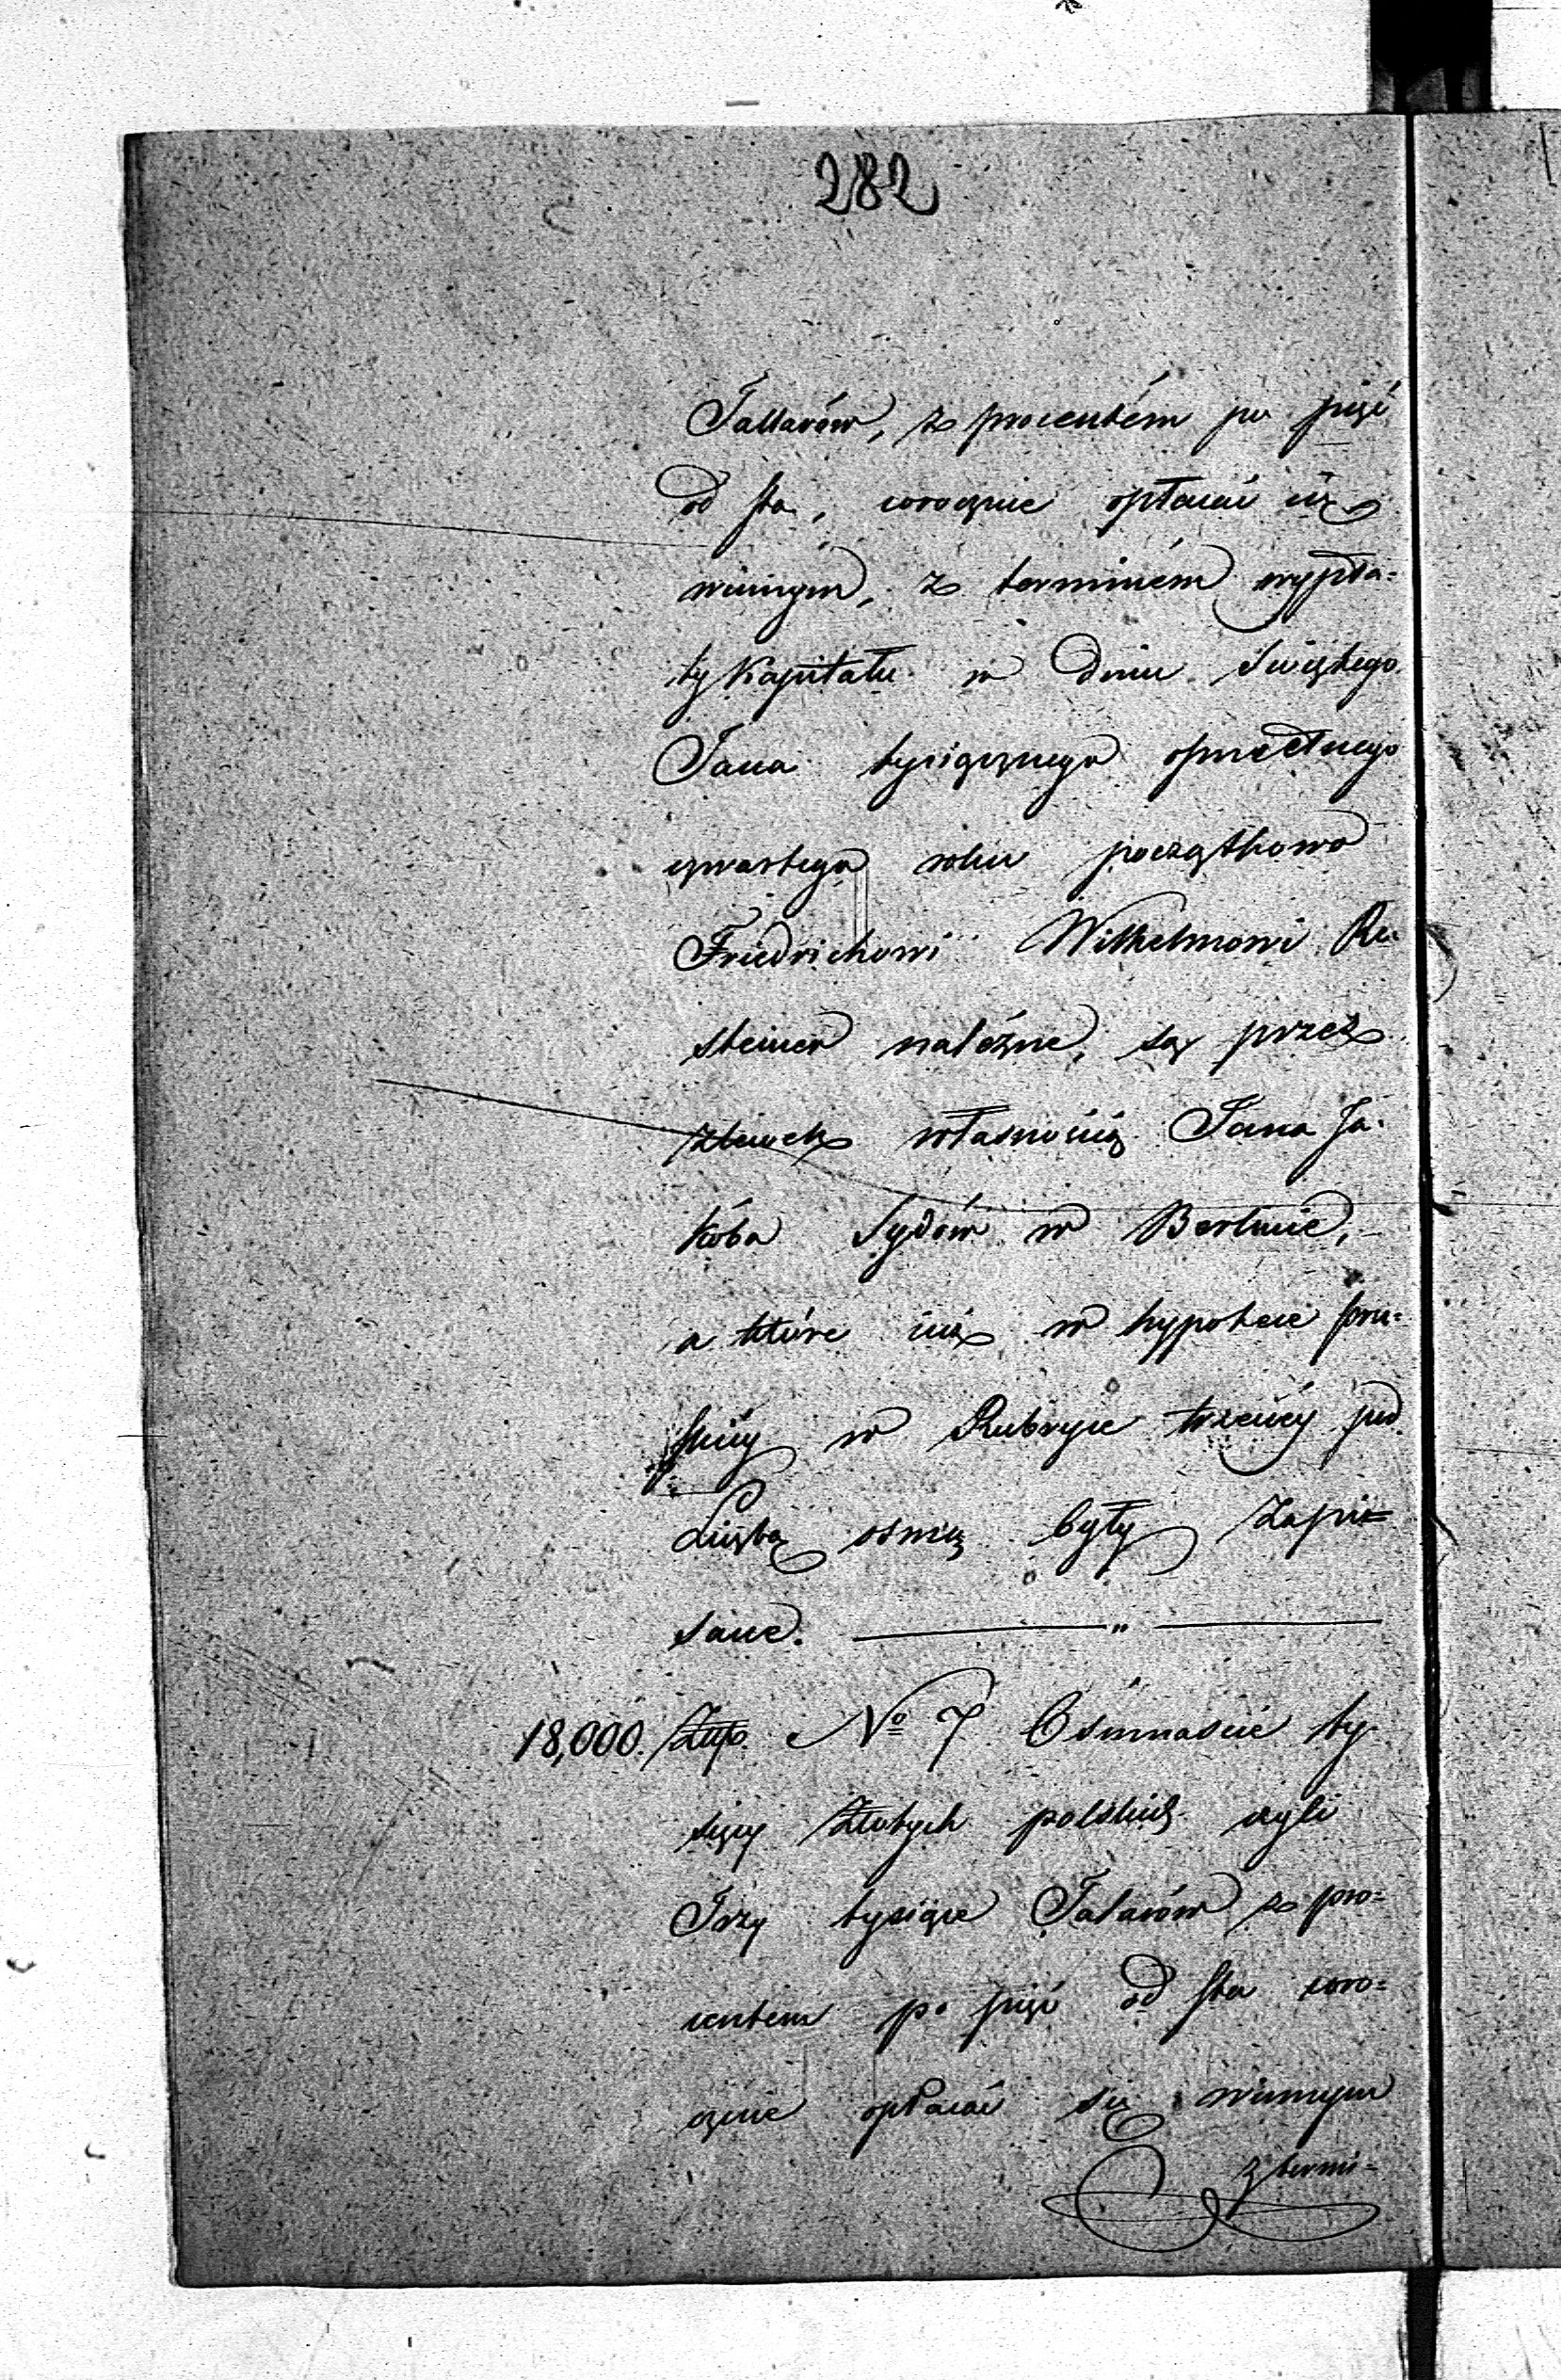 282
Tallarów, z procentém po pięć
od sta, corocznie opłacać się
winnym, z terminém wypła=
ty Kapitału w dniu Świętego
Jana tysiącznego ośmsetnego
czwartego roku początkowo
Friedrichowi Wilhelmowi Ru
steiner należne, są przez
zlewek własnością Jana Ja-
kóba Sydów w Berlinie,
a które już w hypotece pru=
skiéy w Rubryce trzeciéy pod
Liczbą osmą były Zapi=
sane. — " —
18,000. Złłp. No 7 Osimnaście ty
sięcy Złotych polskich czyli
Trzy tysiące Talarów z pro=
centem po pięć od sta coro=
cznie opłacać się winnym
z termi=